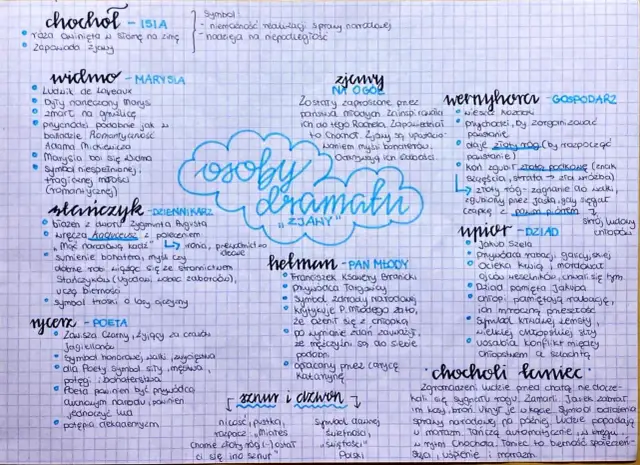 chochoł - ISIA
• róża owinięta w słomę na zimę
• zapowiada zjawy
Symbol:
- niemożność realizacji sprawy narodowej
- nadzieja na niepodległość
widmo - MARYSIA
• Ludwik de Laveaux
• były narzeczony Marysi
• zmarł na gruźlicę
• przychodzi podobnie jak w
balladzie Romantyczność
Adama Mickiewicza
• Marysia boi się widma
• symbol niespełnionej,
tragicznej miłości
(romantycznej)
zjawy
NA OGÓŁ
Zostały zaproszone przez
Chochoł. Zjawy są
myśli bohaterów.
ich słabości
wernyhora - GOSPODARZ
• wieszcz kozacki
• przychodzi, by zorganizować
powstanie
• daje złoty róg (by rozpocząć
powstanie)
• koń zgubił złotą podkowę (znak
szczęścia, strata → zła wróżba)
↳ złoty róg - zagrzanie do walki,
zgubiony przez Jaśka, gdy sięgał
czapkę z pawim piórem
strój ludowy
chłopów
osoby
dramatu
"ZJAWY"
stańczyk - DZIENNIKARZ
• błazen z dworu Zygmunta Augusta
• wręcza kaduceusz z poleceniem
"Mąć narodową kadź"
↳ ironia,
• sumienie bohatera, myśl czy
dobrze robi wiążąc się ze stronnictwem
Stańczyków (ugodowi wobec zaborców),
uczą bierności
• symbol troski o losy ojczyzny
hetman - PAN MŁODY
• Franciszek Ksawery Branicki
• przywódca Targowicy
• Symbol zdrady narodowej
• krytykuje P. Młodego za to,
że ożenił się z chłopką,
po wymianie zdań zauważył,
że mężczyźni są do siebie
podobni
• opłacony przez carycę
Katarzynę
upiór - DZIAD
• Jakub Szela
• przywódca rabacji galicyjskiej
• Ocieka krwią, mordował
• Dziad pamięta Jakuba
• chłopi pamiętają rabację,
ich mroczną przeszłość
• Symbol krwawej zemsty,
wielkiej chłopskiej siły
• uosabia konflikt między
chłopstwem a szlachtą
rycerz - POETA
• Zawisza Czarny, żyjący za czasów
Jagiellonów
• symbol honorowej walki, zwycięstwa
• dla Poety symbol siły, męstwa,
potęgi i bohaterstwa
• Poeta powinien być przywódcą
duchowym narodu, powinien
jednoczyć lud
• potępia dekadentyzm
sznur i dzwon
nicość, pustka,
rozpacz, "Miałeś
Chamie złoty róg (...) ostał
ci się ino sznur"
symbol dawnej
świetności,
"świętości"
Polski
"chocholi taniec"
Zaproszeni ludzie przed chatą nie docze-
kali się sygnału rogu. Zamarli. Jasiek zabrał
im kosy, broń. Ukrył je w kącie. Symbol odłożenia
sprawy narodowej na później. Ludzie popadają
w marazm. Tańczą automatycznie, w kręgu,
w rytm Chochoła. Taniec to bierność społeczeń-
stwa, uśpienie i marazm.